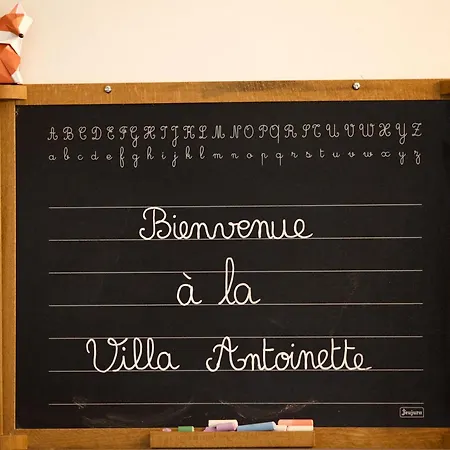 A B C D E F G H I J K L M N O P Q R S T U V W X Y Z
a b c d e f g h i j k l m n o p q r s t u v w x y z
Bienvenue
à la
Villa Antoinette
Jeujura